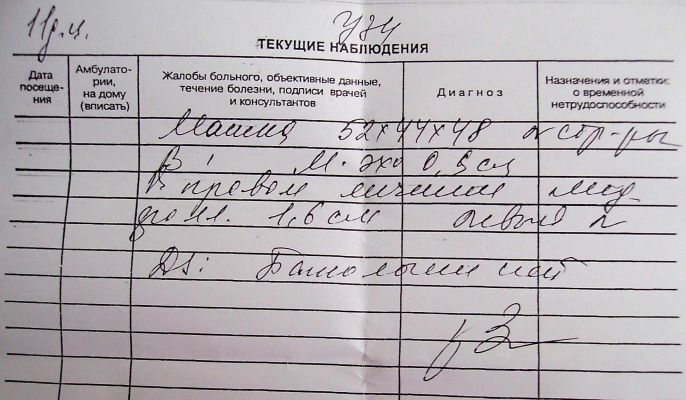 11 д.ц. УЗИ
ТЕКУЩИЕ НАБЛЮДЕНИЯ
Дата посеще- ния
Амбулато- рии, на дому (вписать)
Жалобы больного, объективные данные, течение болезни, подписи врачей и консультантов
Диагноз
Назначения и отметки о временной нетрудоспособности
Матка 52х44х48
М-эхо 0,9 см
В правом яичнике
1,6 см левый
DS: Патологии нет